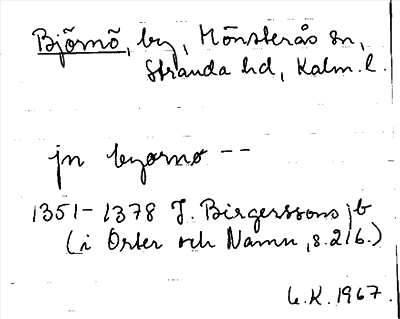 Björnö, by, Mönsterås sn,
Stranda hd, Kalm. l.
jn byorno --
1351-1378 J. Birgerssons jb
(i Orter och Namn, s. 216.)
G.K. 1967.